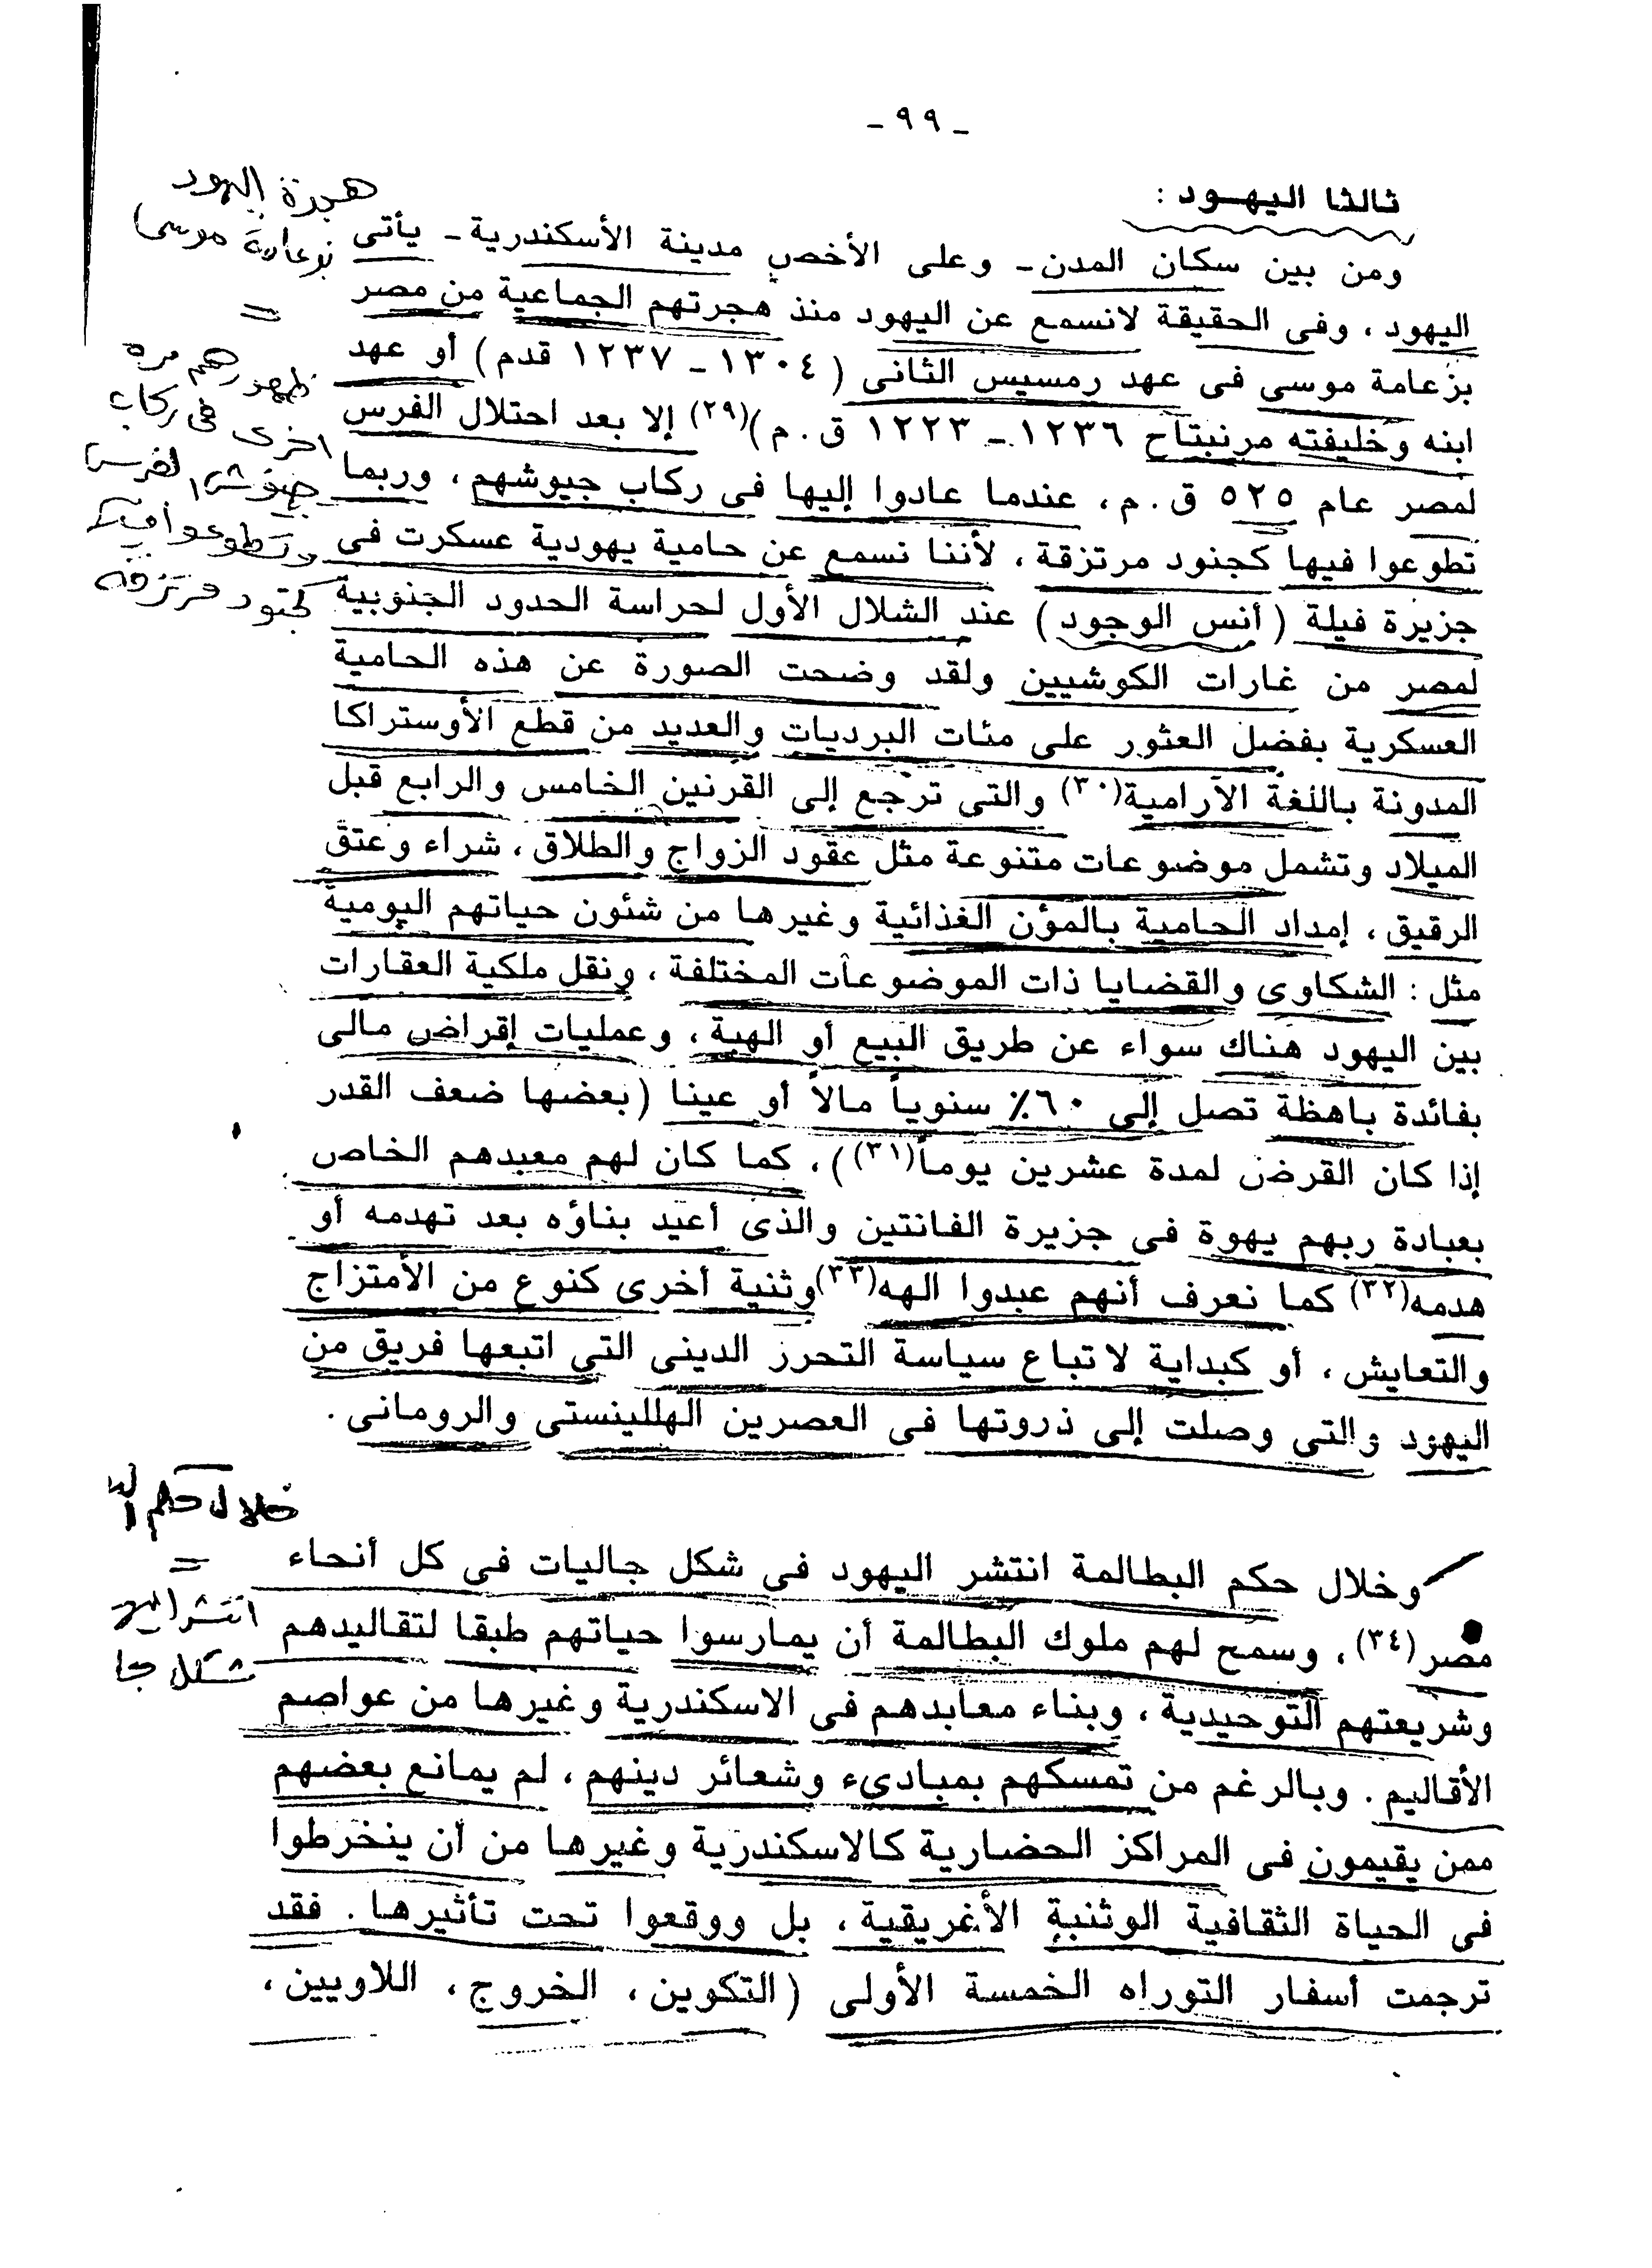 - ٩٩ -
ثالثا اليهود :
ومن بين سكان المدن - وعلى الأخص مدينة الأسكندرية - يأتى
اليهود ، وفى الحقيقة لانسمع عن اليهود منذ هجرتهم الجماعية من مصر
بزعامة موسى فى عهد رمسيس الثانى ( ١٣٠٤ - ١٢٣٧ قدم ) أو عهد
ابنه وخليفته مرنبتاح ١٢٣٦ - ١٢٢٣ ق . م )(٢٩) إلا بعد احتلال الفرس
لمصر عام ٥٢٥ ق . م ، عندما عادوا إليها فى ركاب جيوشهم ، وربما
تطوعوا فيها كجنود مرتزقة ، لأننا نسمع عن حامية يهودية عسكرت فى
جزيرة فيلة ( أنس الوجود ) عند الشلال الأول لحراسة الحدود الجنوبية
لمصر من غارات الكوشيين ولقد وضحت الصورة عن هذه الحامية
العسكرية بفضل العثور على مئات البرديات والعديد من قطع الأوستراكا
المدونة باللغة الآرامية(٣٠) والتى ترجع إلى القرنين الخامس والرابع قبل
الميلاد وتشمل موضوعات متنوعة مثل عقود الزواج والطلاق ، شراء وعتق
الرقيق ، إمداد الحامية بالمؤن الغذائية وغيرها من شئون حياتهم اليومية
مثل : الشكاوى والقضايا ذات الموضوعات المختلفة ، ونقل ملكية العقارات
بين اليهود هناك سواء عن طريق البيع أو الهبة ، وعمليات إقراض مالى
بفائدة باهظة تصل إلى ٦٠٪ سنوياً مالاً أو عينا ( بعضها ضعف القدر
إذا كان القرض لمدة عشرين يوماً(٣١) ) ، كما كان لهم معبدهم الخاص
بعبادة ربهم يهوة فى جزيرة الفانتين والذى أعيد بناؤه بعد تهدمه أو
هدمه(٣٢) كما نعرف أنهم عبدوا الهه(٣٣) وثنية أخرى كنوع من الأمتزاج
والتعايش ، أو كبداية لاتباع سياسة التحرز الدينى التى اتبعها فريق من
اليهود والتى وصلت إلى ذروتها فى العصرين الهللينستى والرومانى .
وخلال حكم البطالمة انتشر اليهود فى شكل جاليات فى كل أنحاء
مصر(٣٤) ، وسمح لهم ملوك البطالمة أن يمارسوا حياتهم طبقا لتقاليدهم
وشريعتهم التوحيدية ، وبناء معابدهم فى الاسكندرية وغيرها من عواصم
الأقاليم . وبالرغم من تمسكهم بمبادىء وشعائر دينهم ، لم يمانع بعضهم
ممن يقيمون فى المراكز الحضارية كالاسكندرية وغيرها من أن ينخرطوا
فى الحياة الثقافية الوثنية الأغريقية ، بل ووقعوا تحت تأثيرها . فقد
ترجمت أسفار التوراه الخمسة الأولى ( التكوين ، الخروج ، اللاويين ،
هجرة اليهود
بزعامة موسى
ظهورهم مره
اخرى فى ركاب
جيوش الفرس
وتطوعوا فيها
كجنود مرتزقه
خلال حكم
انتشر
شكل جا